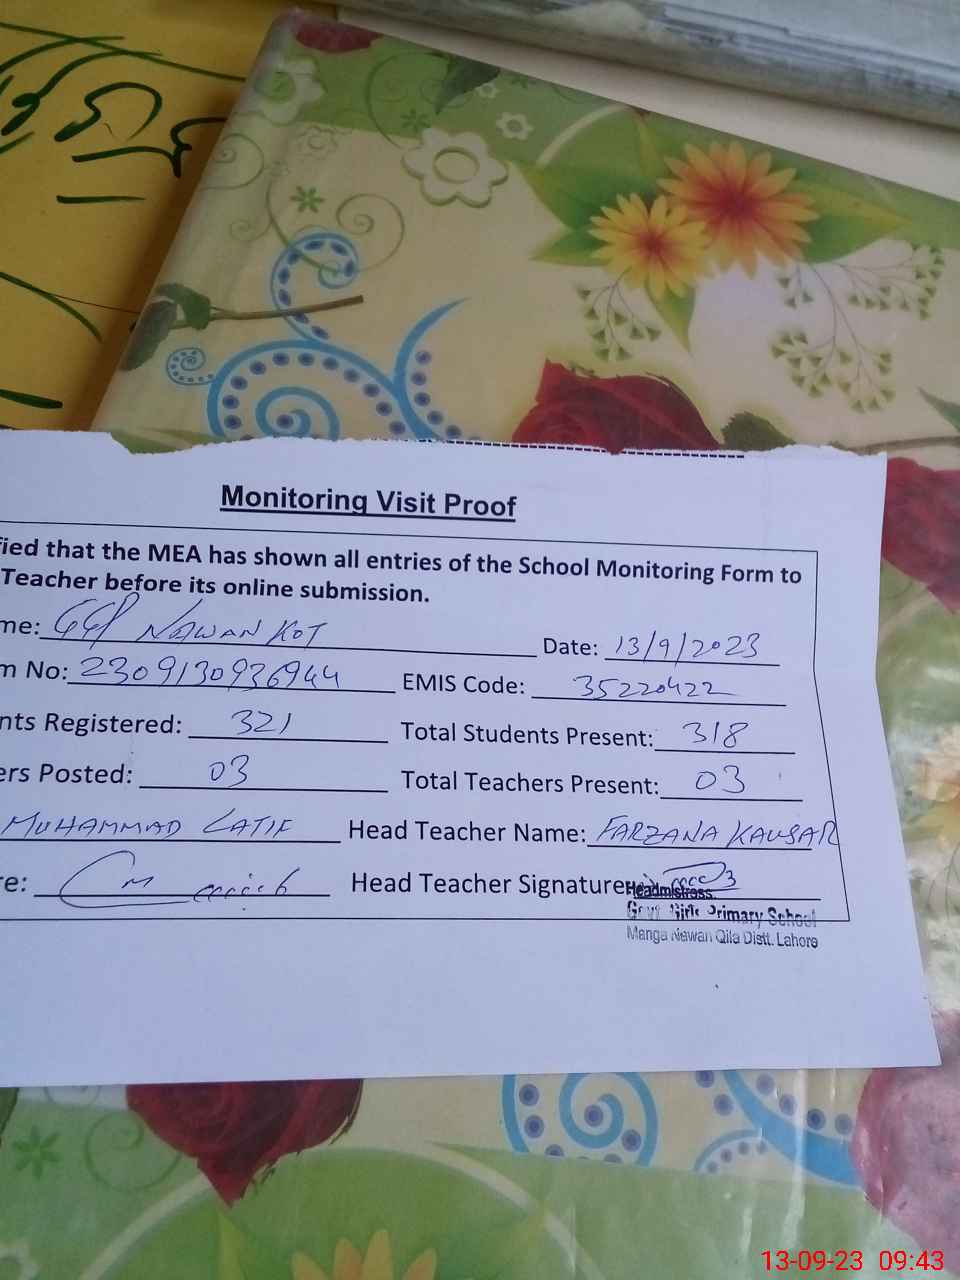 Monitoring Visit Proof
fied that the MEA has shown all entries of the School Monitoring Form to
Teacher before its online submission.
me: GGP NAWAN KOT Date: 13/9/2023
m No: 2309130936944 EMIS Code: 35220422
nts Registered: 321 Total Students Present: 318
ers Posted: 03 Total Teachers Present: 03
MUHAMMAD LATIF Head Teacher Name: FARZANA KAUSAR
re: Head Teacher Signature:
Headmistress
Govt Girls Primary School
Manga Nawan Qila Distt. Lahore
13-09-23 09:43